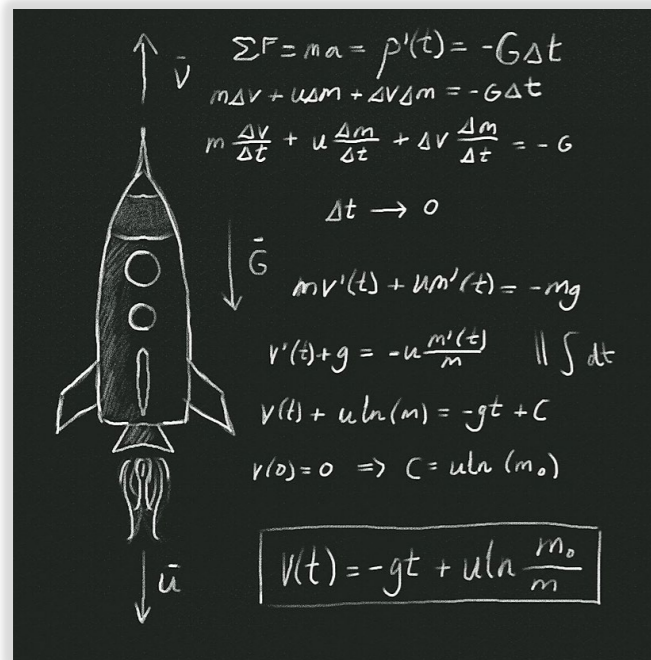 v̄
ΣF = ma = p'(t) = -GΔt
mΔv + uΔm + ΔvΔm = -GΔt
m Δv/Δt + u Δm/Δt + Δv Δm/Δt = -G
Δt → 0
Ḡ
mv'(t) + um'(t) = -mg
v'(t)+g = -u m'(t)/m || ∫ dt
v(t) + u ln(m) = -gt + C
v(0)=0 => C = uln (m₀)
V(t) = -gt + uln m₀/m
ū